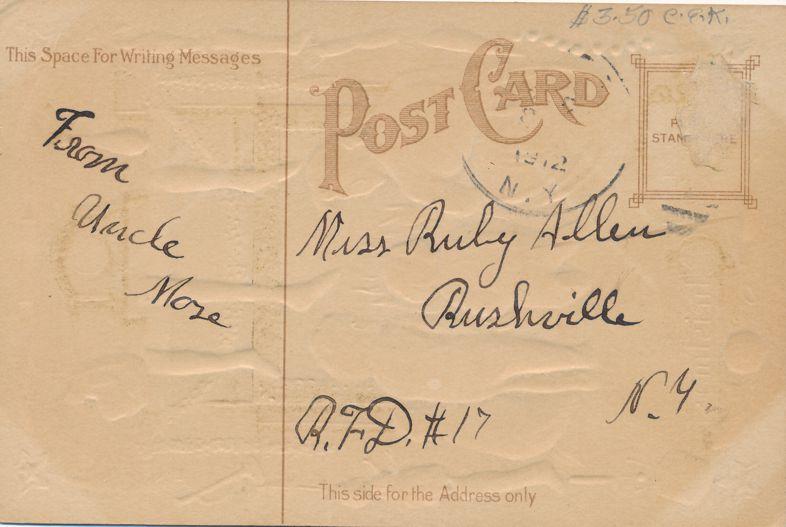 $3.50 C.E.K.
This Space For Writing Messages
POST CARD
1912
N.Y.
From
Uncle
Moze
Miss Ruby Allen
Rushville
N.Y.
R.F.D. #17
This side for the Address only